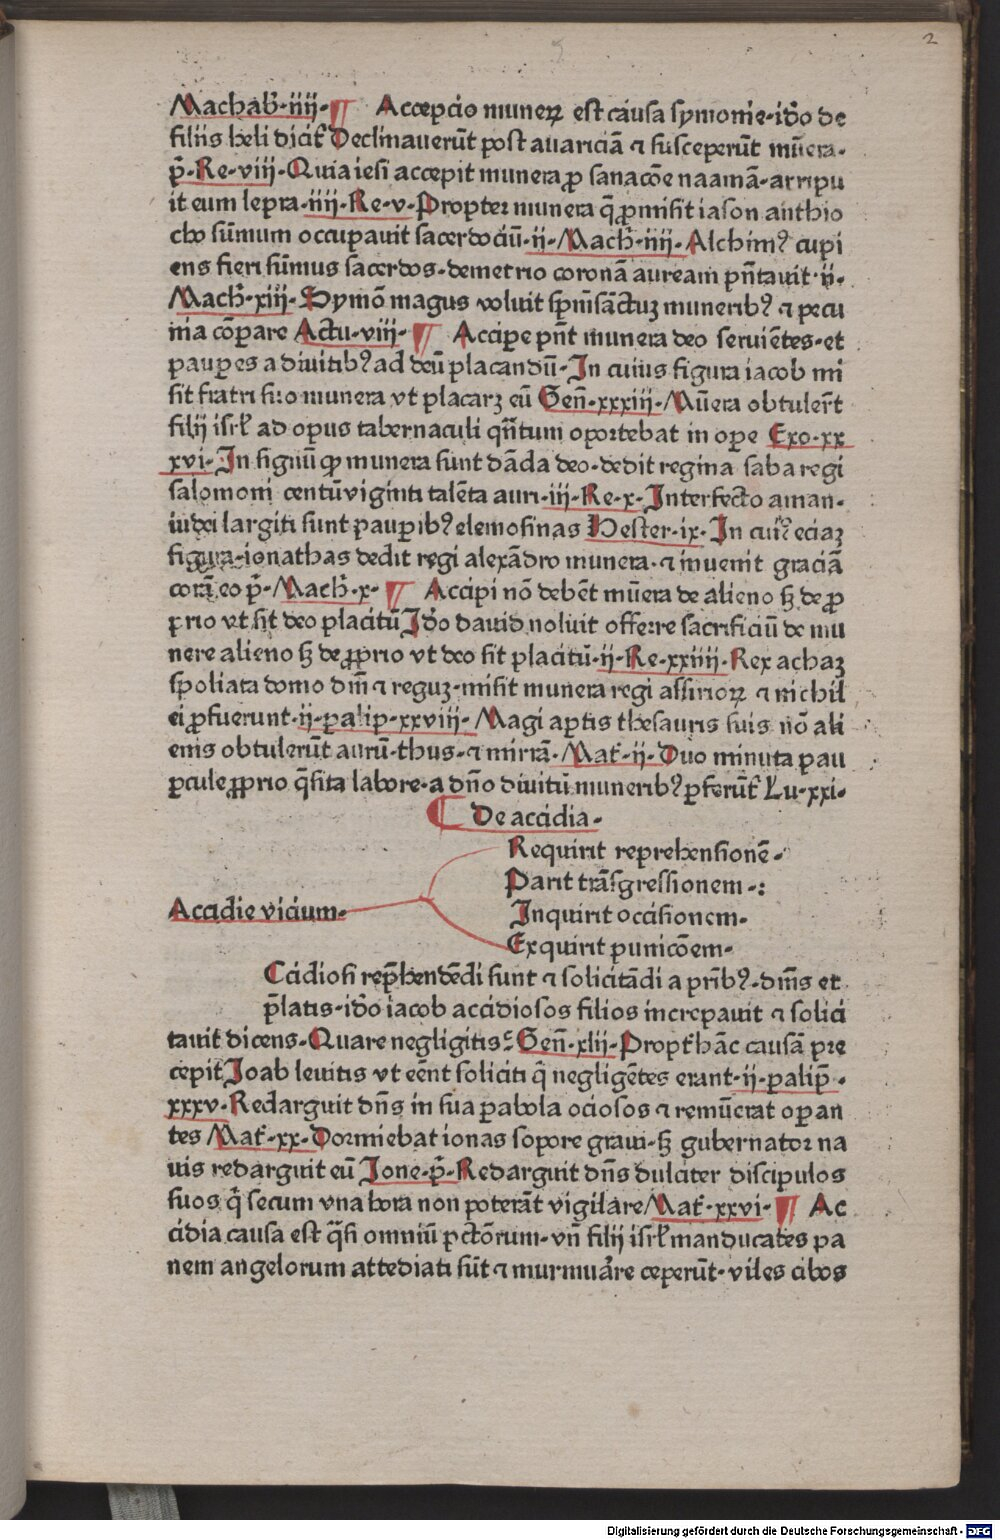 2
Machab̄·iiij· ¶ Accepcio munerꝝ est causa symonie·iđo de
filiis heli dicit̄ Declinauerūt post auariciā ⁊ susceperūt mūera·
p̄·Re·viij·Quia iesi accepit munera ꝓ sanacōe naamā·arripu
it eum lepra·iiij·Re·v·Propter munera q̄ ꝓmisit iason anthio
cho sūmum occupauit sacerdociū·ij·Mach̄·iiij·Alchimꝰ cupi
ens fieri sūmus sacerdos·demetrio coronā auream pn̄tauit·ij·
Mach̄·xiij·Symō magus voluit spm̄sāctuꝫ muneribꝰ ⁊ pecu
nia cōpare Actu·viij· ¶ Accipe pn̄t munera deo seruiētes·et
paupes a diuitibꝰ ad deū placandū·In cuius figura iacob mi
sit fratri suo munera vt placarꝫ eū Gen̄·xxxiij·Mūera obtuler̄t
filij isrl̄ ad opus tabernaculi qn̄tum oportebat in ope Exo·xx
xvi·In signū ꝙ munera sunt dāda deo·dedit regina saba regi
salomoni centūviginti talēta auri·iij·Re·x·Interfecto aman·
iudei largiti sunt paupibꝰ elemosinas Hester·ix·In cuiꝰ eciaꝫ
figura·ionathas dedit regi alexādro munera·⁊ inuenit graciā
corā eo p̄·Mach̄·x· ¶ Accipi nō debēt mūera de alieno sꝫ de ꝓ
prio vt sit deo placitū Iđo dauid noluit offerre sacrificiū de mu
nere alieno sꝫ de ꝓprio vt deo sit placitū·ij·Re·xxiiij·Rex achaꝫ
spoliata domo dm̄ ⁊ reguꝫ·misit munera regi assiriorꝝ ⁊ nichil
ei ꝓfuerunt·ij·palip·xxviij·Magi aptis thesauris suis nō ali
enis obtulerūt aurū·thus·⁊ mirrā·Mat̄·ij·Duo minuta pau
pcule ꝓprio q̄sita labore·a dn̄o diuitū muneribꝰ pferūt̄ Lu·xxi·
De accidia·
Requirit reprehensionē·
Parit trāsgressionem·:
Accidie vicium·
Inquirit occisionem·
Exquirit punicōem·
Ccidiosi rep̄hendēdi sunt ⁊ solicitādi a prībꝰ·dīnis et
p̄latis·iđo iacob accidiosos filios increpauit ⁊ solici
tauit dicens·Quare negligitis? Gen̄·xlij·Propt̄ hāc causā pre
cepit Ioab leuitis vt eēnt soliciti q̄ negligētes erant·ij·palip̄·
xxxv·Redarguit dn̄s in sua pabola ociosos ⁊ remūerat opan
tes Mat̄·xx·Dormiebat ionas sopore graui·sꝫ gubernator na
uis redarguit eū Ione·p̄·Redarguit dn̄s dulciter discipulos
suos q̄ secum vna hora non poterāt vigilare Mat̄·xxvi· ¶ Ac
cidia causa est q̄si omniū pctōrum·vn̄ filij isrl̄ manducātes pa
nem angelorum attediati sūt ⁊ murmuare ceperūt·viles cibos
Digitalisierung gefördert durch die Deutsche Forschungsgemeinschaft - DFG